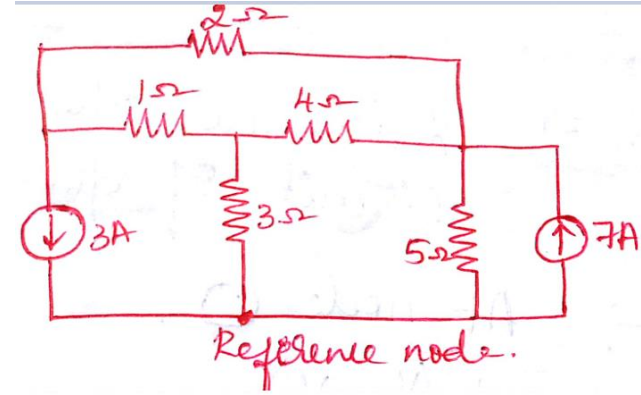 2Ω
1Ω
4Ω
3A
3Ω
5Ω
7A
Reference node.